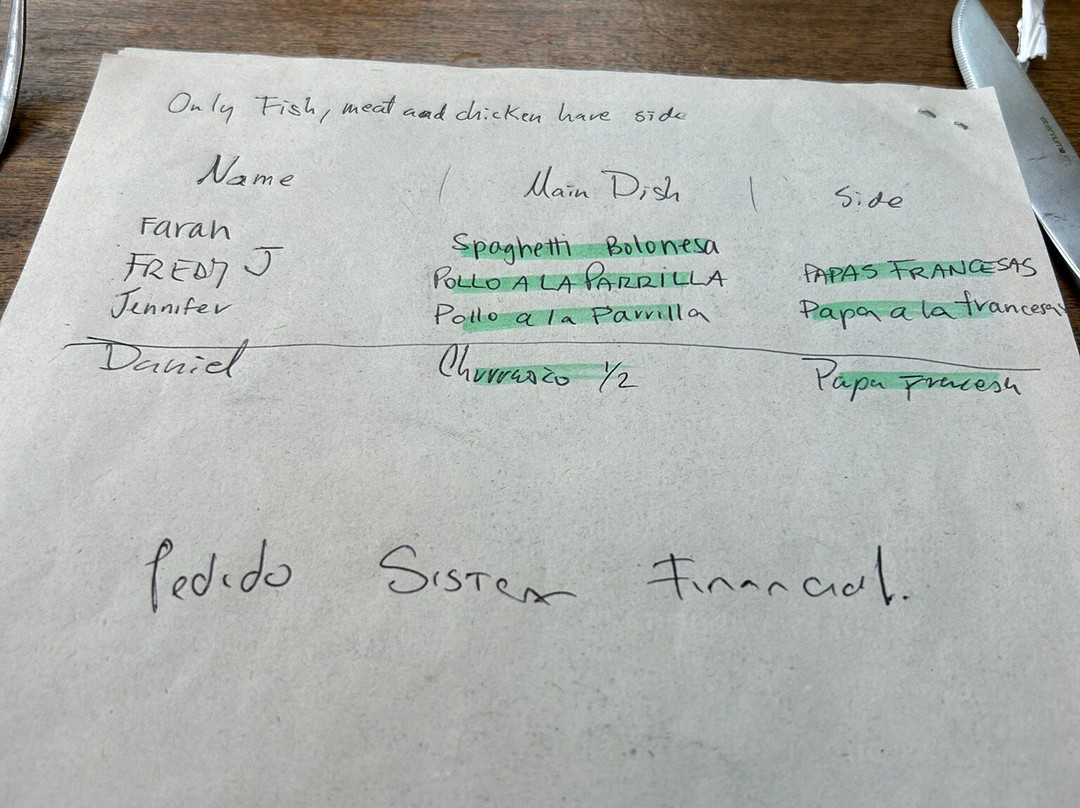 Only Fish, meat and chicken have side
Name | Main Dish | Side
Farah Spaghetti Bolonesa
FREDY J POLLO A LA PARRILLA PAPAS FRANCESAS
Jennifer Pollo a la Parrilla Papa a la francesa
Daniel Churrasco 1/2 Papa Francesa
Pedido Financial.